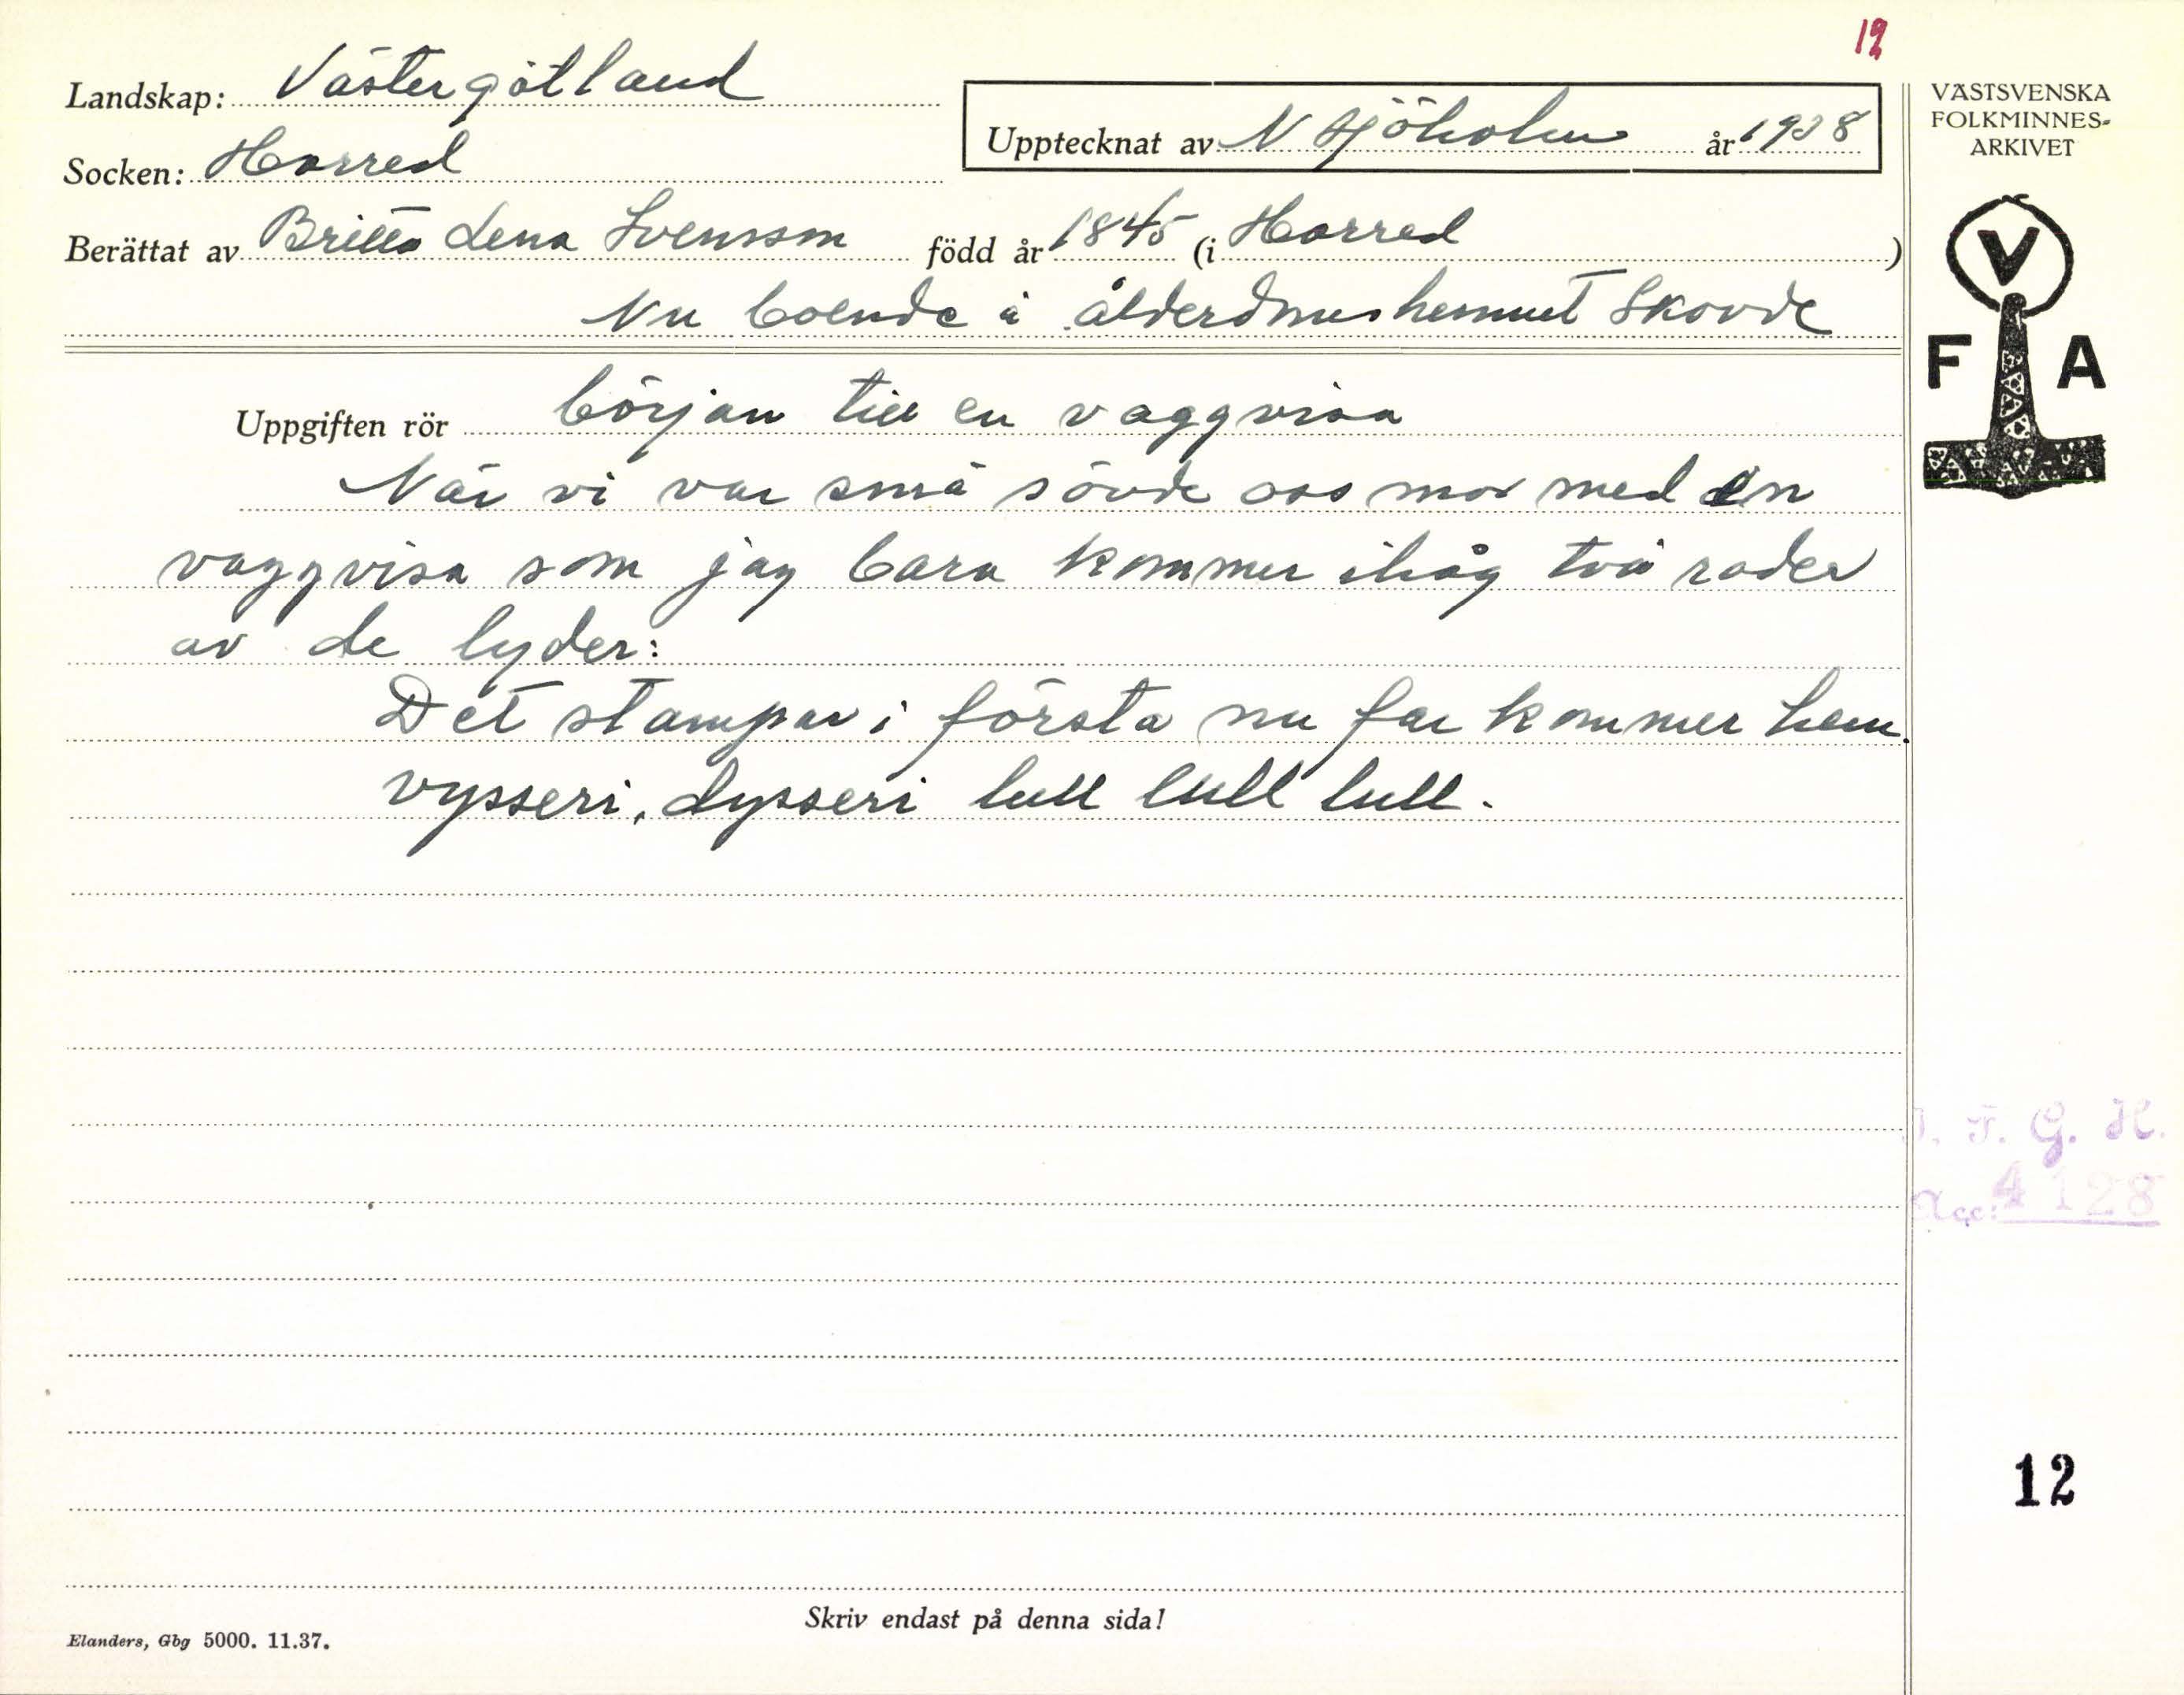 12
Landskap: Västergötland
Upptecknat av N Sjöholm år 1938
Socken: Horred
Berättat av Britta Lena Svensson född år 1845 (i Horred)
Nu boende å ålderdomshemmet Skövde
VÄSTSVENSKA
FOLKMINNES-
ARKIVET
V
F A
Uppgiften rör början till en vaggvisa
När vi var små sövde oss mor med en
vaggvisa som jag bara kommer ihåg två rader
av de lyder:
Det stampar i första nu far kommer hem.
vysseri, lysseri lull lull lull.
I. F. G. H.
Acc: 4128
12
Skriv endast på denna sida!
Elanders, Gbg 5000. 11.37.